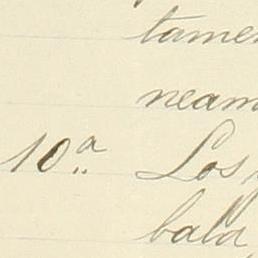 tamen
neam
10ª Los
bala